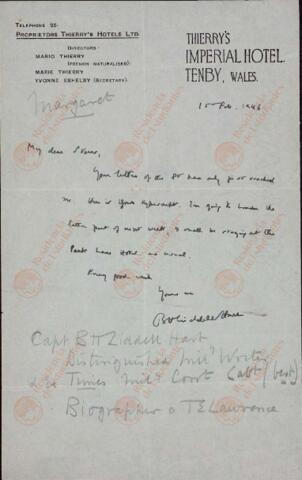 TELEPHONE 25.
PROPRIETORS THIERRY'S HOTELS LTD.
DIRECTORS:
MARIO THIERRY
(FRENCH NATURALISED)
MARIE THIERRY
YVONNE (SECRETARY).
THIERRY'S
IMPERIAL HOTEL.
TENBY, WALES.
Margaret
Feb. 1946
My dear
Your letter of the has only just reached
me. Here is typescript. I'm going to London the
latter part of next week, & shall be staying at the
Park Lane Hotel as usual.
Every good wish
Yours
B H Liddell Hart
Capt B H Liddell Hart
Distinguished Mil'y Writer
Times Mil'y (best)
Biographer o T E Lawrence